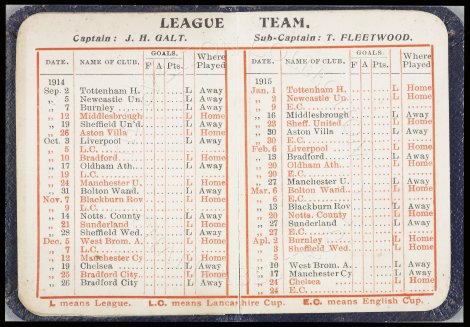 LEAGUE TEAM.
Captain: J. H. GALT. Sub-Captain: T. FLEETWOOD.
DATE. NAME OF CLUB. GOALS. F A Pts. Where Played
1914
Sep. 2 Tottenham H. L Away
„ 5 Newcastle Un. L Away
„ 7 Burnley L Away
„ 12 Middlesbrough L Home
„ 19 Sheffield Un'd. L Away
„ 26 Aston Villa L Home
Oct. 3 Liverpool L Away
„ 5 L.C.
„ 10 Bradford L Home
„ 17 Oldham Ath L Away
„ 19 L.C.
„ 24 Manchester U. L Home
„ 31 Bolton Wand. L Away
Nov. 7 Blackburn Rov L Home
„ 9 L.C.
„ 14 Notts. County L Away
„ 21 Sunderland L Home
„ 28 Sheffield Wed. L Away
Dec. 5 West Brom. A. L Home
„ 7 L.C.
„ 12 Manchester Cy L Home
„ 19 Chelsea L Away
„ 25 Bradford City L Home
„ 26 Bradford City. L Away
DATE. NAME OF CLUB. GOALS. F A Pts. Where Played
1915
Jan. 1 Tottenham H. L Home
„ 2 Newcastle Un. L Home
„ 9 E.C.
„ 16 Middlesbrough L Away
„ 23 Sheff. United L Home
„ 30 Aston Villa L Away
„ 30 E.C.
Feb. 6 Liverpool L Home
„ 13 Bradford L Away
„ 20 Oldham Ath. L Home
„ 20 E.C.
„ 27 Manchester U. L Away
Mar. 6 Bolton Wand. L Home
„ 6 E.C.
„ 13 Blackburn Rov L Away
„ 20 Notts. County L Home
„ 27 Sunderland L Away
„ 27 E.C.
Apl. 2 Burnley L Home
„ 3 Sheffield Wed. L Home
„ 5
„ 10 West Brom. A. L Away
„ 17 Manchester Cy L Away
„ 24 Chelsea L Home
„ 24 E.C.
L means League. L.C. means Lancashire Cup. E.C. means English Cup.